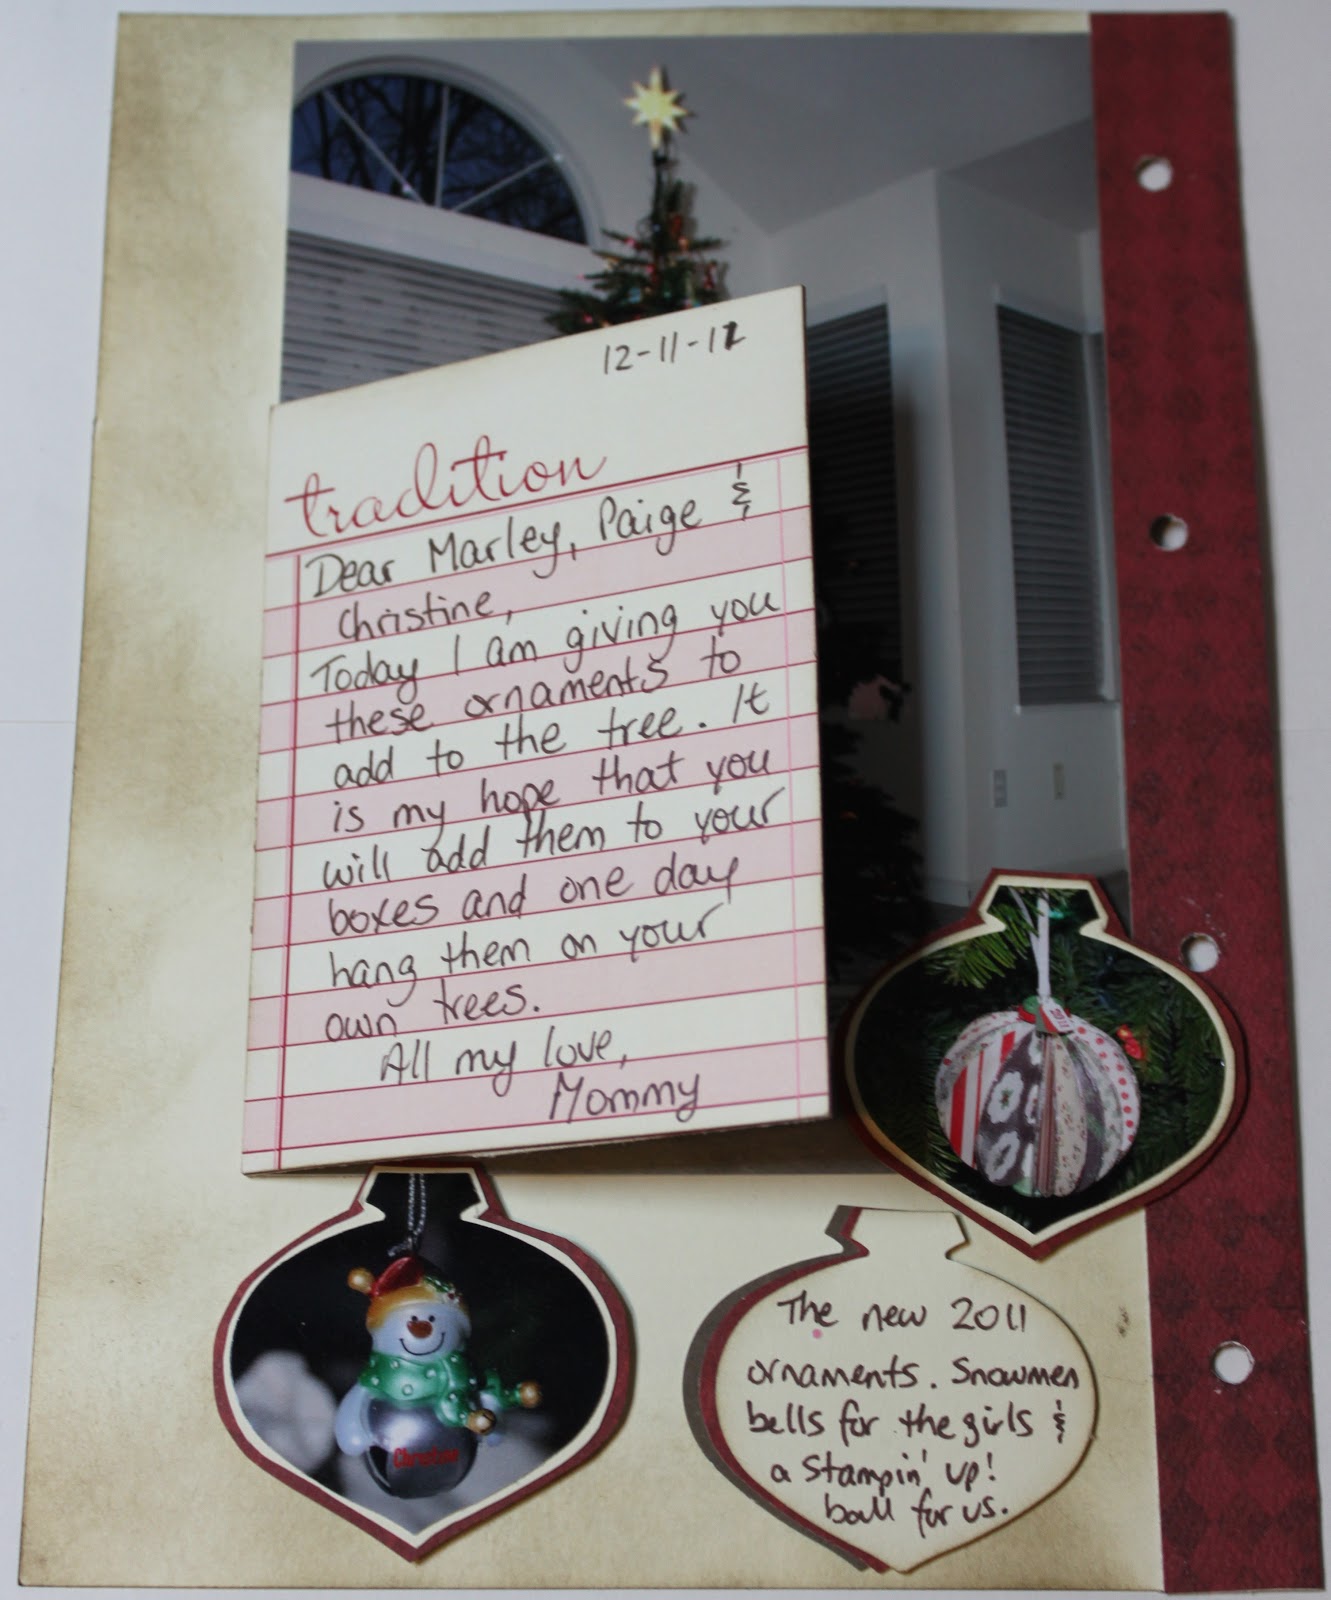 12-11-11
tradition
Dear Marley, Paige &
Christine,
Today I am giving you
these ornaments to
add to the tree. It
is my hope that you
will add them to your
boxes and one day
hang them on your
own trees.
All my love,
Mommy
Christine
The new 2011
ornaments. Snowmen
bells for the girls &
a Stampin' up!
ball for us.